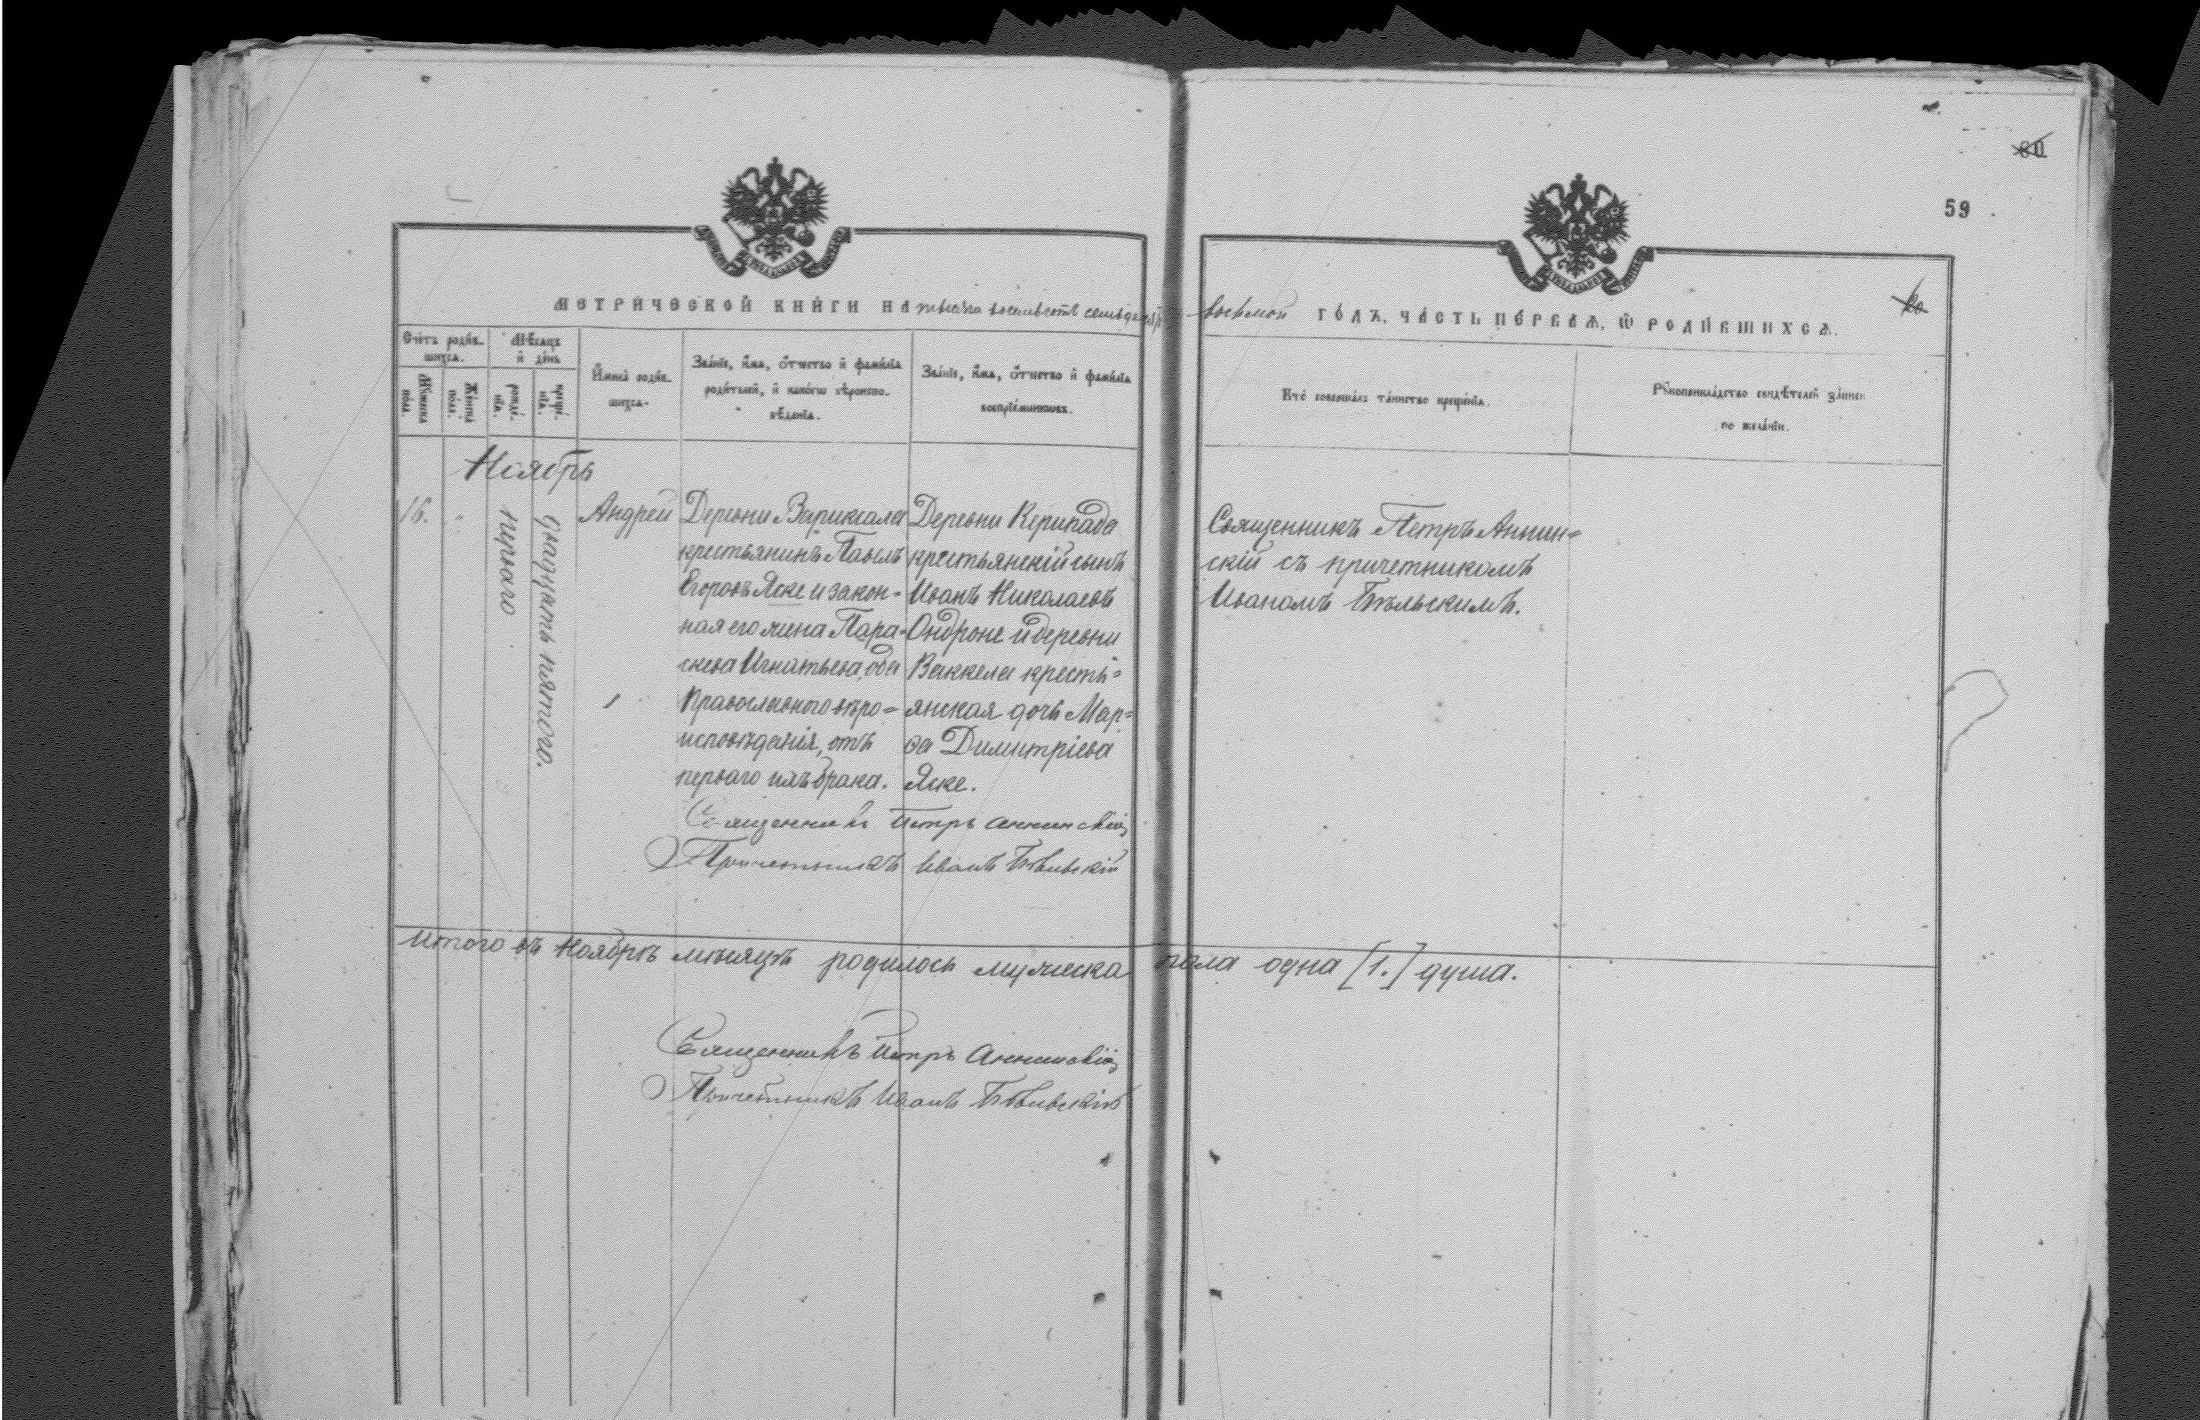 59
МЕТРИЧЕСКОЙ КНИГИ НА тысяча восемьсотъ семьдесятъ восьмой ГОДЪ, ЧАСТЬ ПЕРВАЯ, Ѡ РОДИВШИХСЯ.
Счетъ родив-
шихся.
Мужеска пола.
Женска пола.
Мѣсяцъ
и день
рожде-
нія.
креще-
нія.
Имена родив-
шихся.
Званіе, имя, отчество и фамилія
родителей, и какого вѣроиспо-
вѣданія.
Званіе, имя, отчество и фамилія
воспріемниковъ.
Кто совершалъ таинство крещенія.
Рукоприкладство свидѣтелей записи
по желанію.
Ноябрь
16.
перваго
двадцать пятого.
Андрей
Деревни Вариксала
крестьянинъ Павелъ
Егоровъ Яске и закон-
ная его жена Пара-
скева Игнатьева, оба
православного вѣро-
исповѣданія, отъ
перваго ихъ брака.
Деревни Керипада
крестьянскій сынъ
Иванъ Николаевъ
Ондроне и деревни
Ваккела кресть-
янская дочь Мар-
ѳа Димитріева
Яске.
Священникъ Петръ Аннин-
скій съ причетникомъ
Иваномъ Бѣльскимъ.
Священникъ Петръ Аннинскій
Причетникъ Иванъ Бѣльскій
Итого въ Ноябрѣ мѣсяцѣ родилось мужеска пола одна [1.] душа.
Священникъ Петръ Аннинскій
Причетникъ Иванъ Бѣльскій